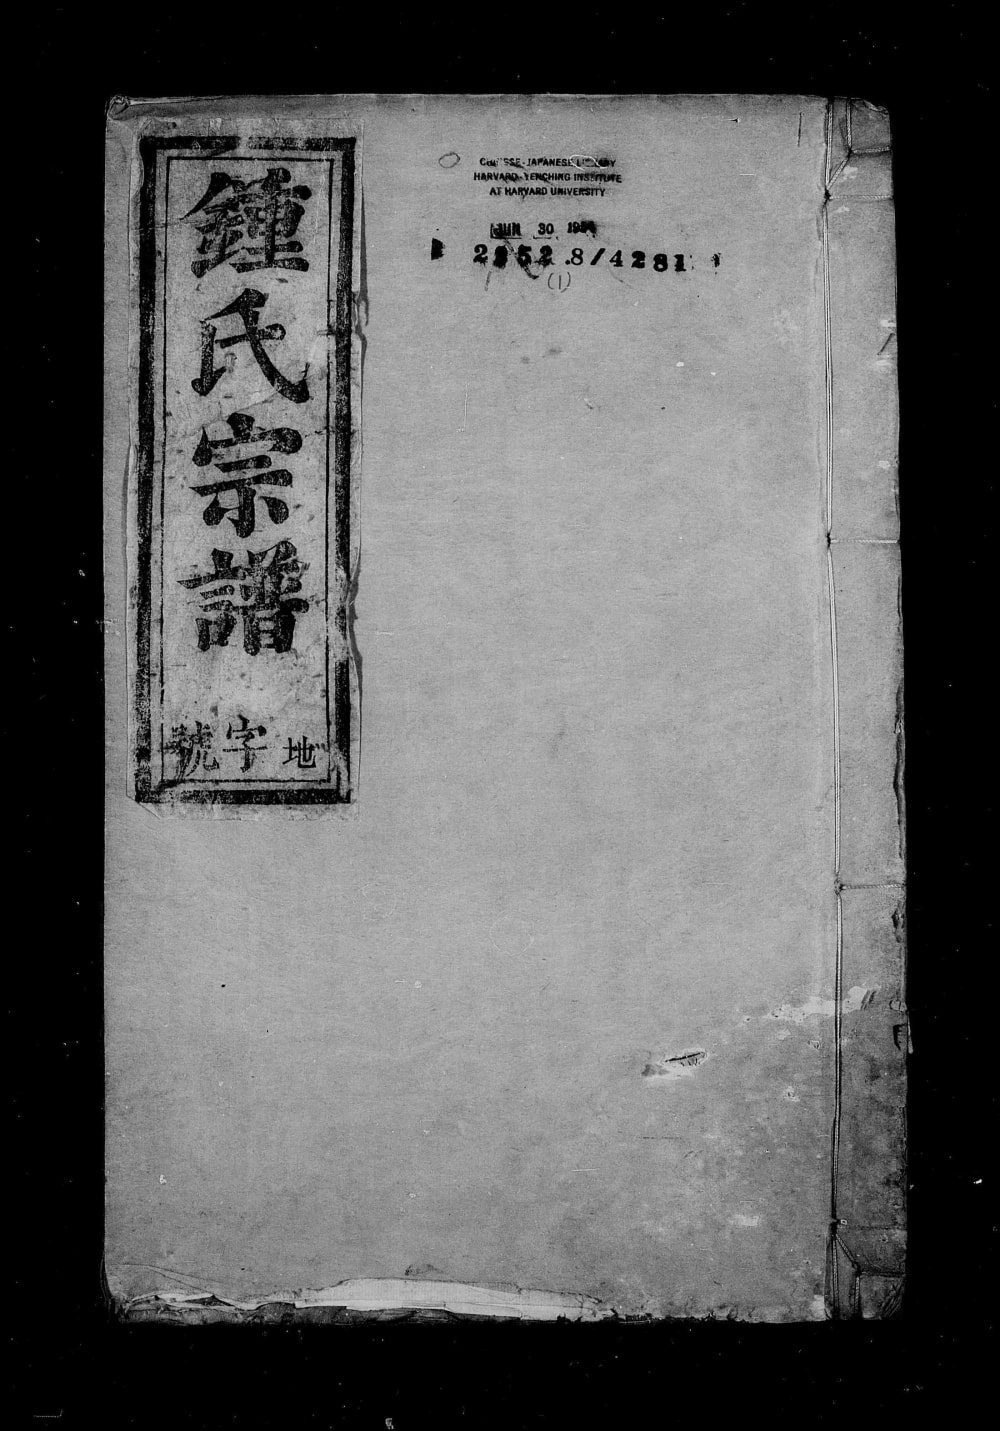 鍾氏宗譜
地字號
CHINESE-JAPANESE LIBRARY
HARVARD-YENCHING INSTITUTE
AT HARVARD UNIVERSITY
JUN 30
2252.8/4281
(1)